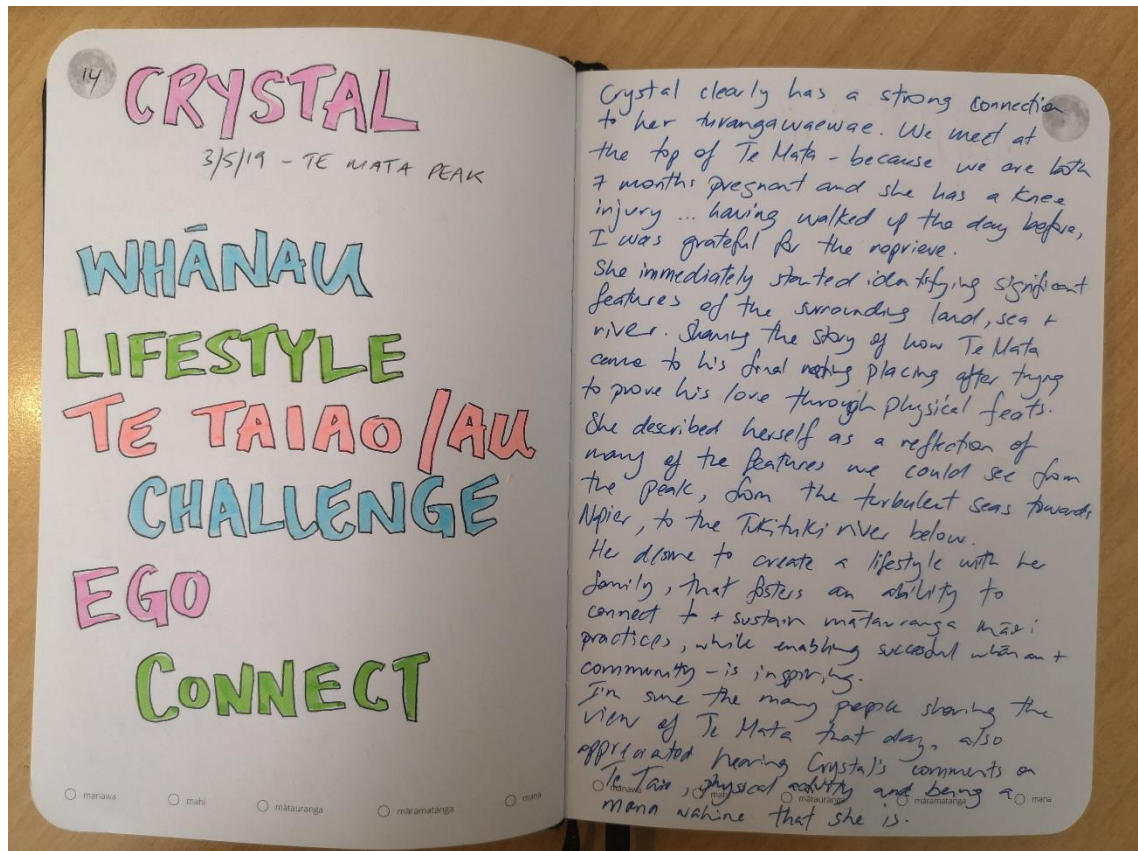 14
CRYSTAL
3/5/19 - TE MATA PEAK
WHĀNAU
LIFESTYLE
TE TAIAO/AU
CHALLENGE
EGO
CONNECT
manawa mahi mātauranga māramatanga mana
Crystal clearly has a strong connection
to her turangawaewae. We meet at
the top of Te Mata - because we are both
7 months pregnant and she has a knee
injury ... having walked up the day before,
I was grateful for the reprieve.
She immediately started identifying significant
features of the surrounding land, sea +
river. Sharing the story of how Te Mata
came to his final resting placing after trying
to prove his love through physical feats.
She described herself as a reflection of
many of the features we could see from
the peak, from the turbulent seas towards
Napier, to the Tukituki river below.
Her desire to create a lifestyle with her
family, that fosters an ability to
connect to + sustain mātauranga māori
practices, while enabling successful whānau +
community - is inspiring.
I'm sure the many people sharing the
view of Te Mata that day, also
appreciated hearing Crystal's comments on
Te Taiao, physical activity and being a
mana wahine that she is.
manawa mahi mātauranga māramatanga mana